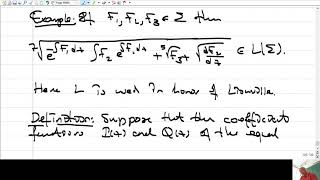 Example: If F₁, F₂, F₃ ∈ Σ then
⁷√(1/e^{∫F₁dt} ∫F₂ e^{∫F₁dt} + ⁵√F₃ + √(dF₂/dt)) ∈ L(Σ).
Here L is used in honor of Liouville.
Definition: Suppose that the coefficient
functions P(t) and Q(t) of the equat